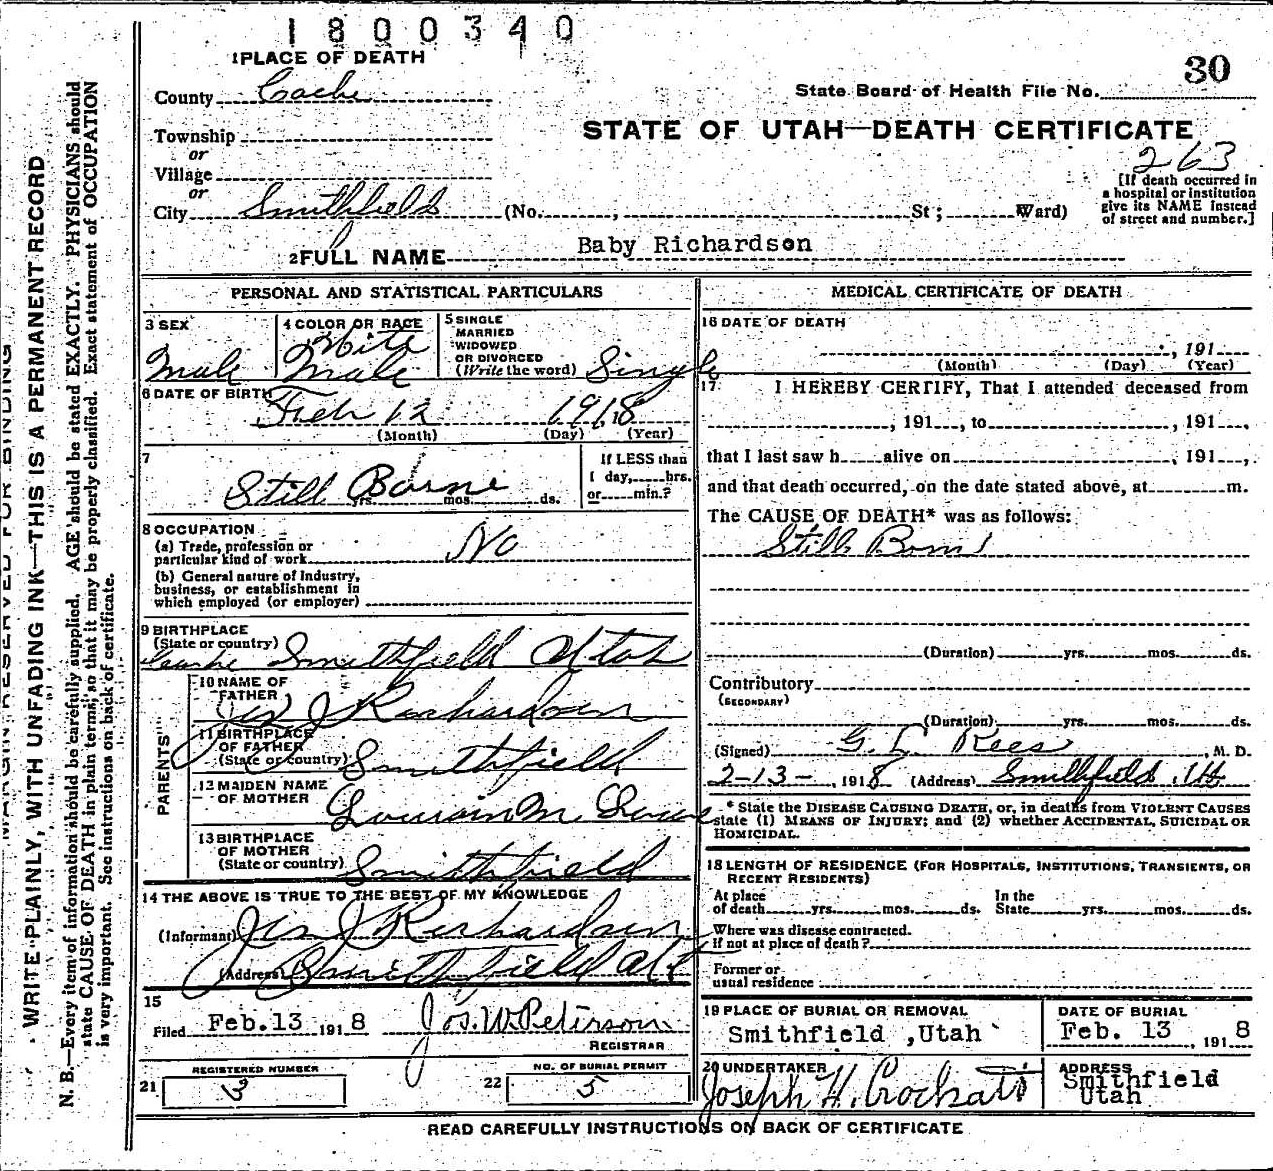 1800340
1 PLACE OF DEATH
30
State Board of Health File No.
County Cache
STATE OF UTAH—DEATH CERTIFICATE
Township
or
263
Village
or
[If death occurred in
a hospital or institution
give its NAME instead
of street and number.]
City Smithfield (No. , St; Ward)
2 FULL NAME Baby Richardson
PERSONAL AND STATISTICAL PARTICULARS
3 SEX
Male
4 COLOR OR RACE
White
Male
5 SINGLE
MARRIED
WIDOWED
OR DIVORCED
(Write the word) Single
6 DATE OF BIRTH
Feb 12 1918
(Month) (Day) (Year)
7
Still Borne
yrs. mos. ds.
If LESS than
1 day, hrs.
or min.?
8 OCCUPATION
(a) Trade, profession or
particular kind of work No
(b) General nature of Industry,
business, or establishment in
which employed (or employer)
9 BIRTHPLACE
(State or country)
Cache Smithfield Utah
PARENTS
10 NAME OF
FATHER
J Richardson
11 BIRTHPLACE
OF FATHER
(State or country) Smithfield
12 MAIDEN NAME
OF MOTHER
13 BIRTHPLACE
OF MOTHER
(State or country) Smithfield
14 THE ABOVE IS TRUE TO THE BEST OF MY KNOWLEDGE
(Informant) J Richardson
(Address) Smithfield Ut
15
Filed Feb. 13 1918 Jos. W. Peterson
REGISTRAR
REGISTERED NUMBER
21 3
NO. OF BURIAL PERMIT
22 5
MEDICAL CERTIFICATE OF DEATH
16 DATE OF DEATH
, 191
(Month) (Day) (Year)
17 I HEREBY CERTIFY, That I attended deceased from
, 191 , to , 191 ,
that I last saw h alive on , 191 ,
and that death occurred, on the date stated above, at m.
The CAUSE OF DEATH* was as follows:
Still Born
(Duration) yrs. mos. ds.
Contributory
(SECONDARY)
(Duration) yrs. mos. ds.
(Signed) G. L. Rees M. D.
2-13-, 1918 (Address) Smithfield, Ut
* State the DISEASE CAUSING DEATH, or, in deaths from VIOLENT CAUSES
state (1) MEANS OF INJURY; and (2) whether ACCIDENTAL, SUICIDAL OR
HOMICIDAL.
18 LENGTH OF RESIDENCE (FOR HOSPITALS, INSTITUTIONS, TRANSIENTS, OR
RECENT RESIDENTS)
At place
of death yrs. mos. ds.
In the
State yrs. mos. ds.
Where was disease contracted.
if not at place of death?
Former or
usual residence
19 PLACE OF BURIAL OR REMOVAL
Smithfield ,Utah
DATE OF BURIAL
Feb. 13 , 1918
20 UNDERTAKER
Joseph H.
ADDRESS
Smithfield
Utah
READ CAREFULLY INSTRUCTIONS ON BACK OF CERTIFICATE
MARGIN RESERVED FOR BINDING
WRITE PLAINLY, WITH UNFADING INK—THIS IS A PERMANENT RECORD
N. B.—Every item of information should be carefully supplied. AGE should be stated EXACTLY. PHYSICIANS should
state CAUSE OF DEATH in plain terms, so that it may be properly classified. Exact statement of OCCUPATION
is very important. See instructions on back of certificate.